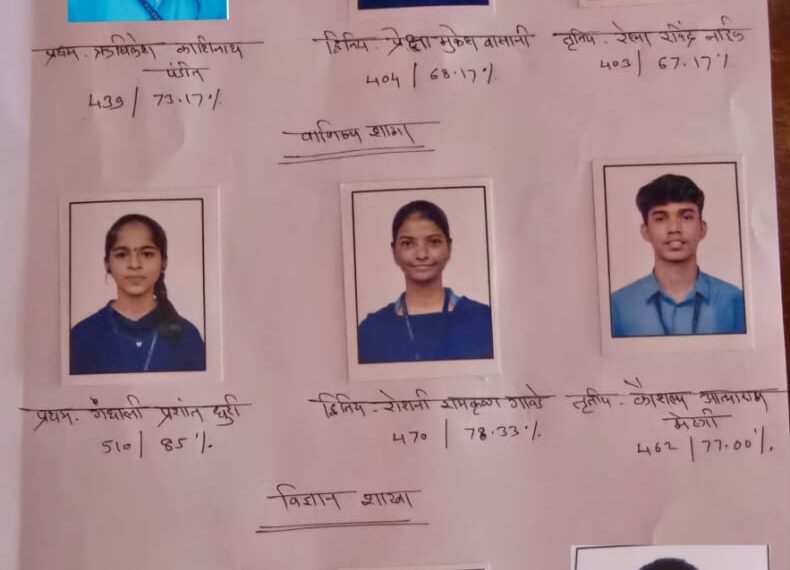 प्रथम - ऋषिकेश काशिनाथ
पंडीत
439 / 73.17%
द्वितिय - प्रेक्षा मुकेश वासानी
404 / 68.17%
तृतिय - रेश्मा रविंद्र नाईक
403 / 67.17%
वाणिज्य शाखा
प्रथम - गंधाली प्रशांत धुरी
510 / 85%.
द्वितिय - रोशनी रामकृष्ण गावडे
470 / 78.33%.
तृतीय - कौशल्य आत्माराम
मेस्त्री
462 / 77.00%.
विज्ञान शाखा